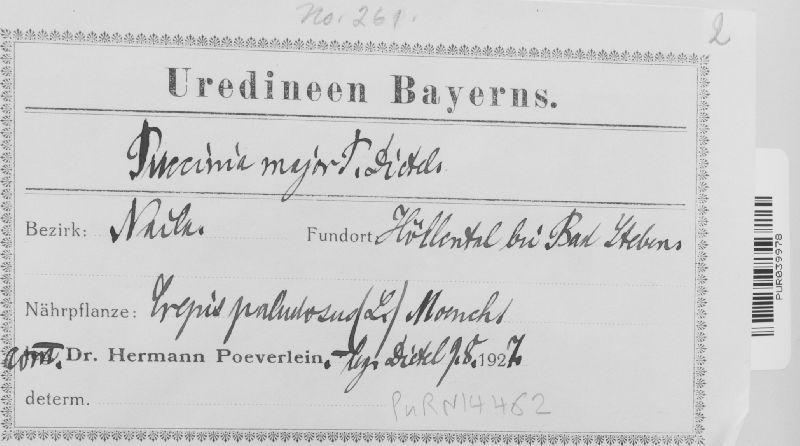 No. 261.
2
Uredineen Bayerns.
Puccinia major P. Dietel.
Bezirk: Naila. Fundort Höllental bei Bad Steben.
Nährpflanze: Crepis paludosus (L.) Moench.
com. Dr. Hermann Poeverlein. – leg. Dietel 9.8.1927.
determ.
PuRN14462
PUR039978